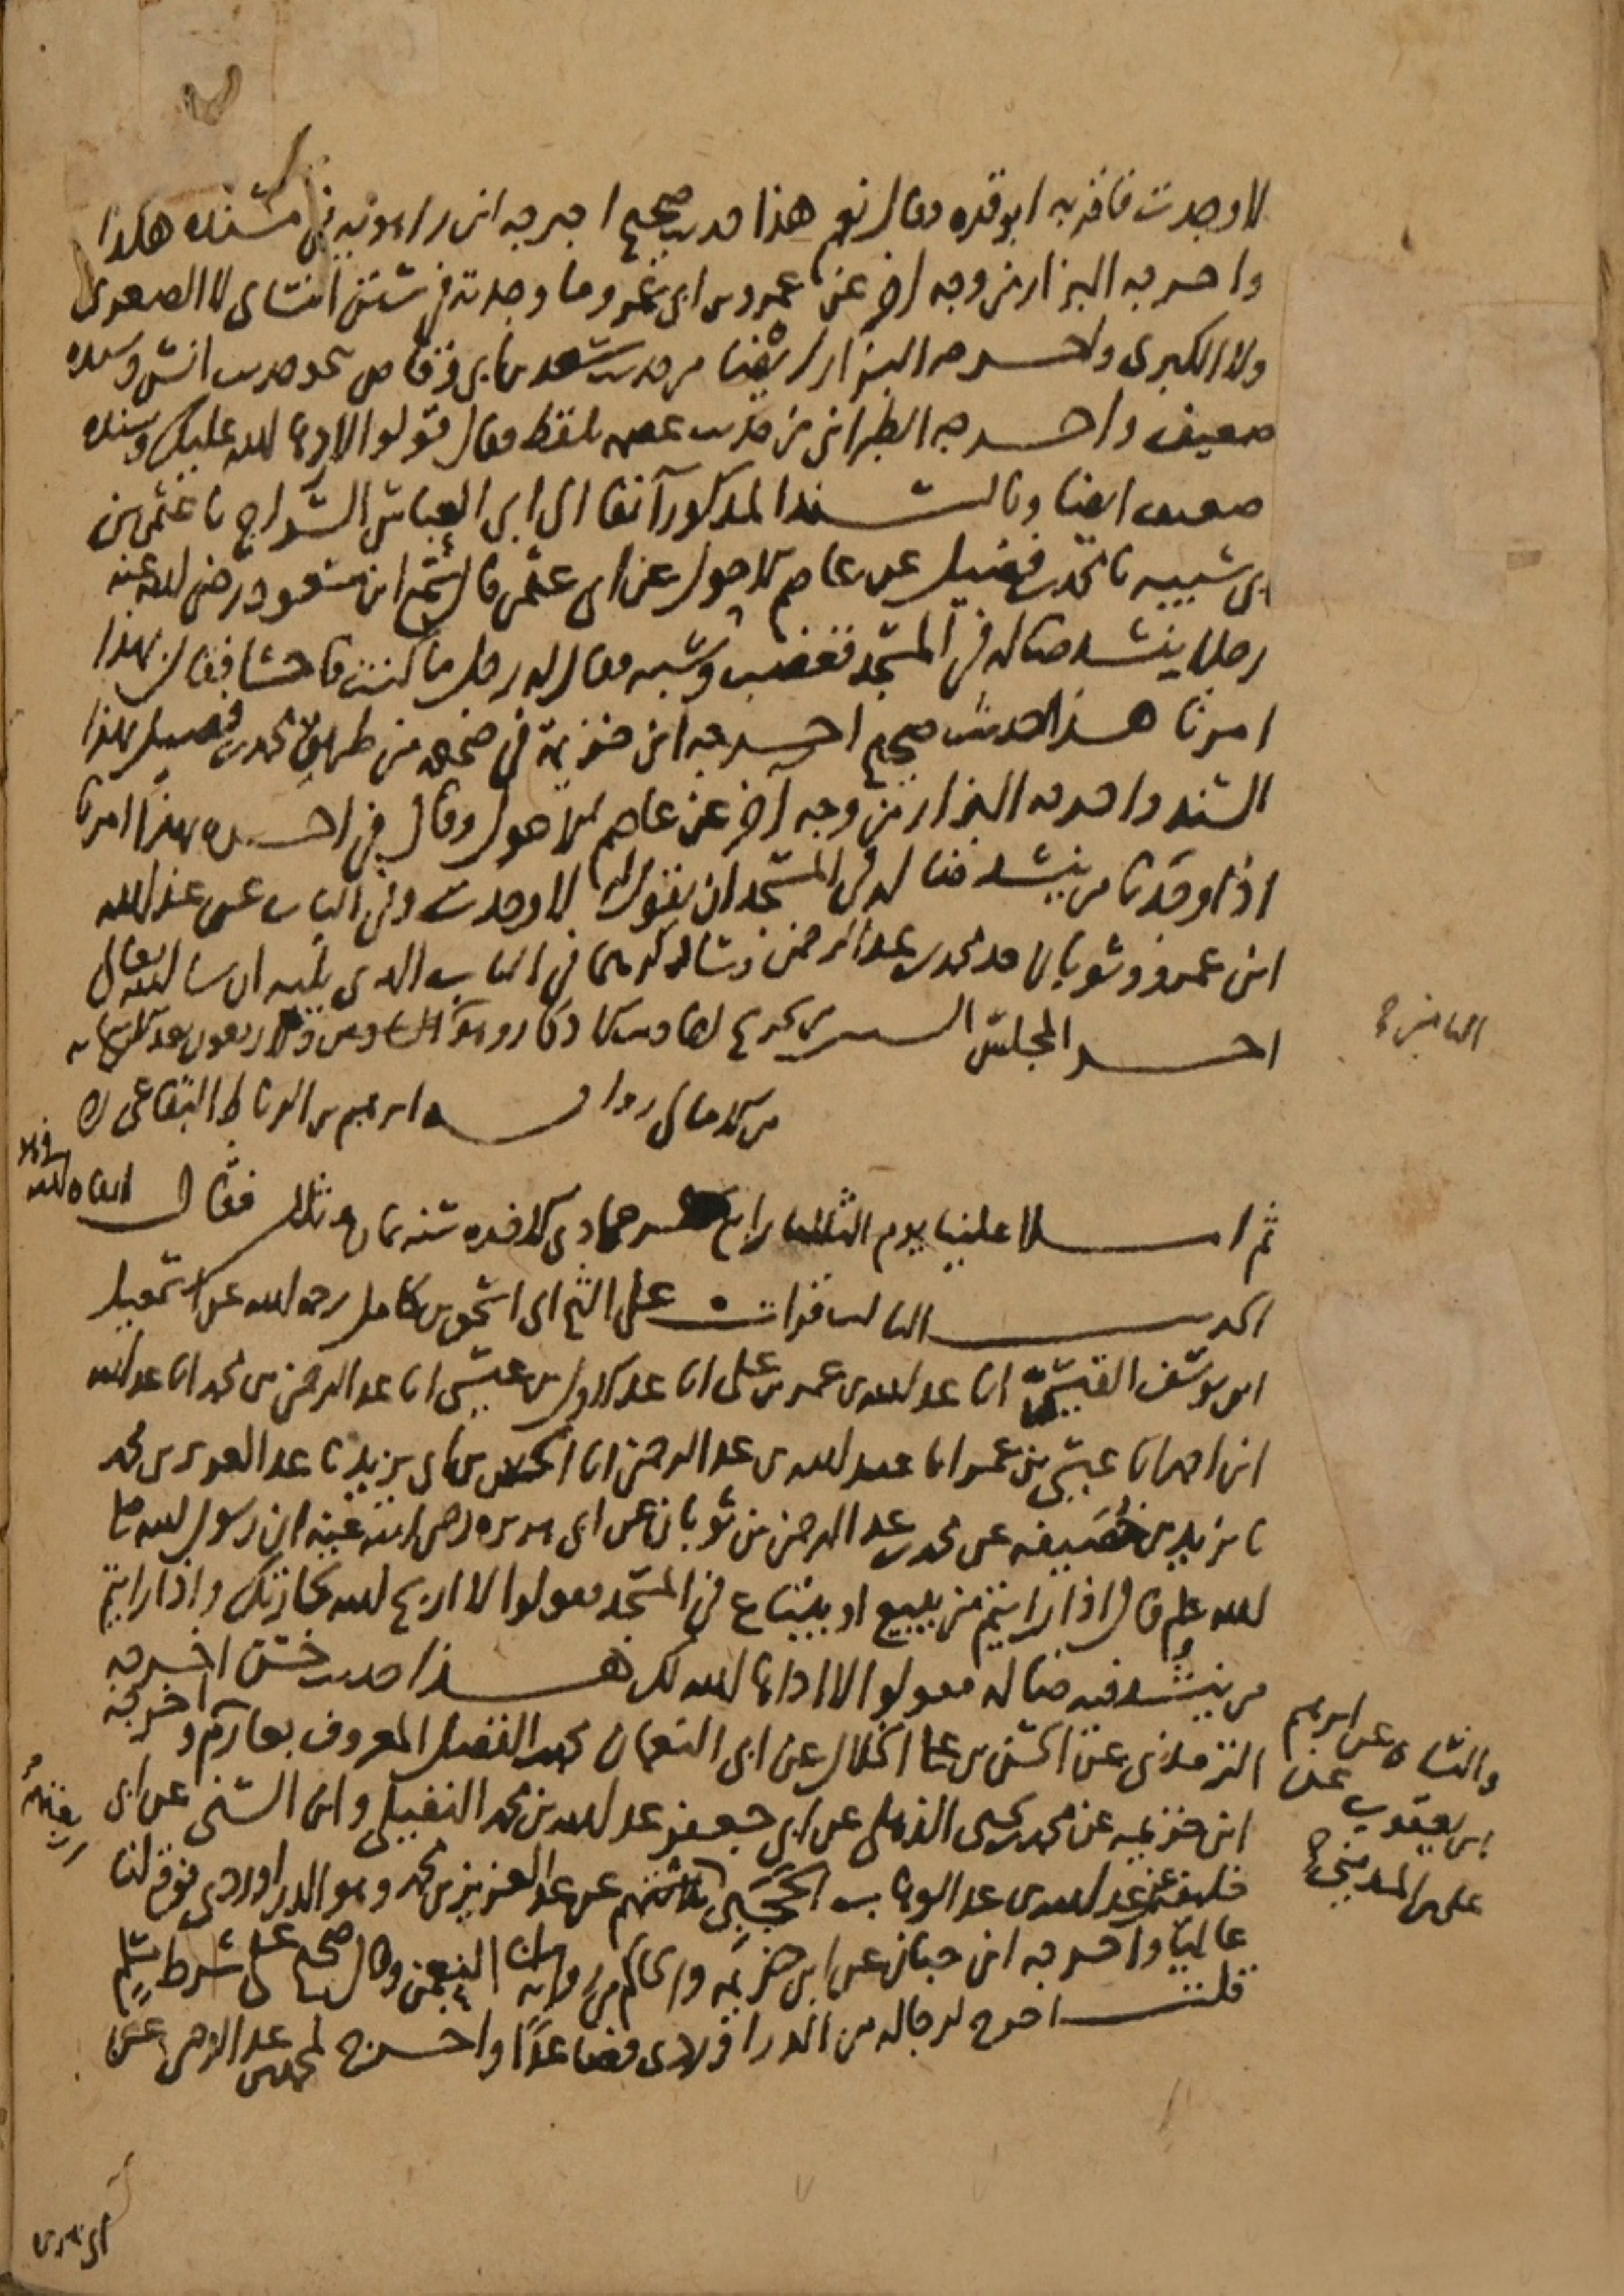 لا وجدت فاقر به ابو قره وقال نعم هذا حديث صحيح اخرجه ابن راهويه في مسنده هكذا
واخرجه البزار من وجه اخر عن عمرو بن ابي عمرو وما وجدته في سنن النسائي لا الصغرى
ولا الكبرى واخرجه البزار ايضا من حديث سعد بن ابي وقاص نحو حديث انس وسنده
ضعيف واخرجه الطبراني من حديث بلفظ فقال قولوا لا ردها الله عليك وسنده
ضعيف ايضا وبالسند المذكور آنفا الى ابي العباس السراج نا عثمن بن
ابي شيبه نا محمد بن فضيل عن عاصم الاحول عن ابي عثمن قال سمع ابن مسعود رضي الله عنه
رجلا ينشد ضاله في المسجد فغضب وسبه فقال له رجل ما كنت فاحشا فقال بهذا
امرنا هذا حديث صحيح اخرجه ابن خزيمة في صحيحه من طريق محمد بن فضيل بهذا
السند واخرجه البزار من وجه آخر عن عاصم الاحول وقال في اخره بهذا امرنا
اذا وجدنا من ينشد ضالة في المسجد ان نقول له لا وجدت وفي الباب عن عبد الله
ابن عمرو وثوبان جد محمد بن عبد الرحمن وسنذكرهما في الباب الذي يليه ان شا الله تعالى
اخر المجلس السـ من تخريج احاديث الاذكار وهو السادس والاربعون بعد
من الامالي رواية ابرهيم بن الرباط البقاعي له
ثم املا علينا يوم الثلثا رابع عشر جمادى الاخره سنه تاريخه فقال
الحديث الثالث قرات على الشيخ ابي اسحق بن كامل رحمه الله عن اسمعيل
ابن يوسف القيسي انا عبد الله بن عمر بن علي انا عبد الاول بن عيسى انا عبد الرحمن بن محمد انا عبد الله
ابن احمد انا عيسى بن عمر انا عبد الله بن عبد الرحمن انا الحسن بن ابي يزيد نا عبد العزيز بن محمد
نا يزيد بن خصيفه عن محمد بن عبد الرحمن بن ثوبان عن ابي هريره رضي الله عنه ان رسول الله صلى
الله عليه وسلم قال اذا رايتم من يبيع او يبتاع في المسجد فقولوا لا اربح الله تجارتك واذا رايتم
من ينشد فيه ضاله فقولوا لا اداها الله لك هذا حديث حسن اخرجه
الترمذي عن الحسن بن علي الخلال عن ابي النعمان محمد بن الفضل المعروف بعارم واخرجه
ابن خزيمه عن محمد بن يحيى الذهلي عن ابي جعفر عبد الله بن محمد النفيلي وابن السني عن ابي
خليفه عن عبد الله بن عبد الوهاب الحجبي ثلاثتهم عن عبد العزيز بن محمد وهو الدراوردي فوقع لنا
عاليا واخرجه ابن حبان عن ابن خزيمه والحاكم من رواية النعمن وقال صحيح على شرط مسلم
قلت اخرج لرجاله من الدراوردي فصاعدا واخرج لمحمد بن عبد الرحمن عن
والنسائي عن ابرهيم
بن يعقوب عن
علي بن المديني